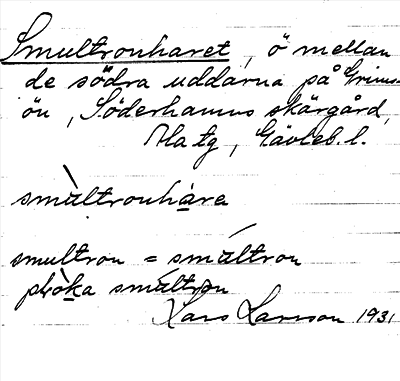 Smultronharet, ö mellan
de södra uddarna på Grims-
ön, Söderhamns skärgård,
Ma tg, Gävleb. l.
smùltronha̲re
smultron = smúltron
plòk̲a smúltrọn
Lars Larsson 1931